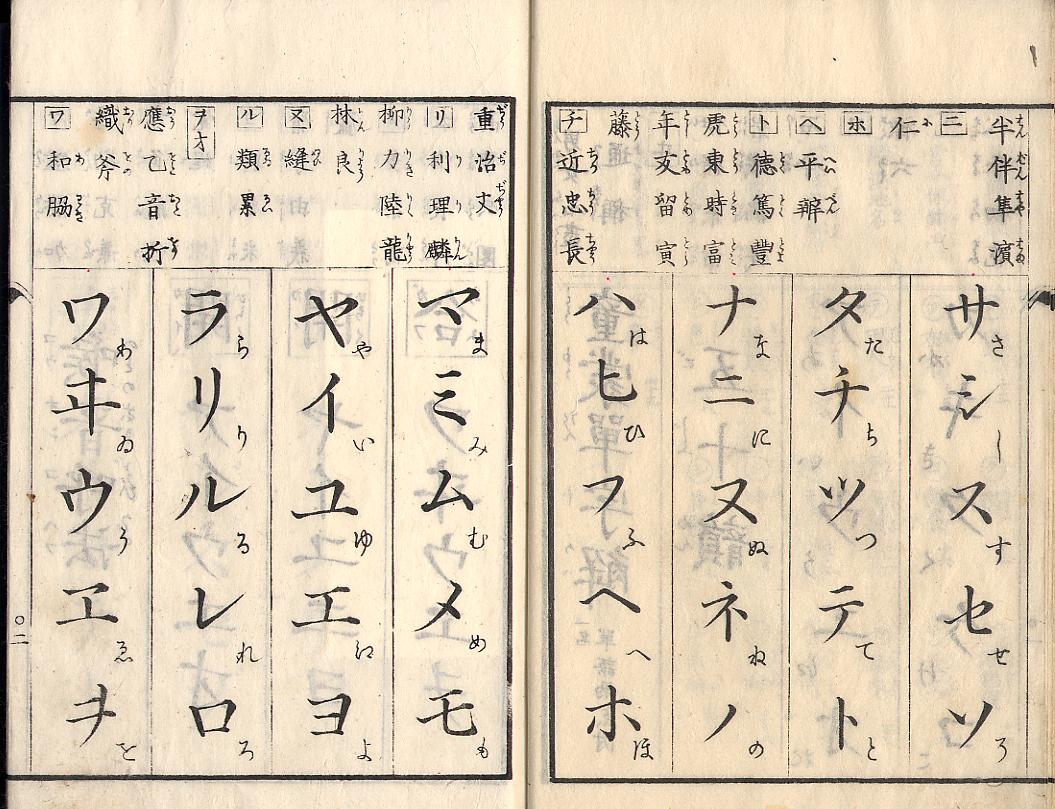 半伴隼濱
ニ
仁
ホ
ヘ 平辨
ト 德篤豐
虎東時富
年友留寅
藤通
チ 近忠長
サシスセソ
さしすせそ
タチツテト
たちつてと
ナニヌネノ
なにぬねの
ハヒフヘホ
はひふへほ
重治丈
リ 利理麟
柳力陸龍
林良
ヌ 縫
ル 類累
ヲオ
應乙音折
織斧
ワ 和脇
マミムメモ
まみむめも
ヤイユエヨ
やいゆえよ
ラリルレロ
らりるれろ
ワヰウヱヲ
わゐうゑを
〇二